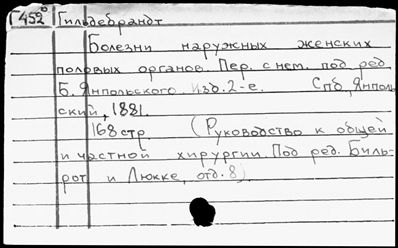 Г452° Гильдебрандт
Болезни наружных женских
половых органов. Пер. с нем. под ред
Б. Янпольского. Изд. 2-е. Спб, Янполь
ский, 1881.
168 стр (Руководство к общей
и частной хирургии. Под ред. Биль-
рот и Люкке, отд. 8)